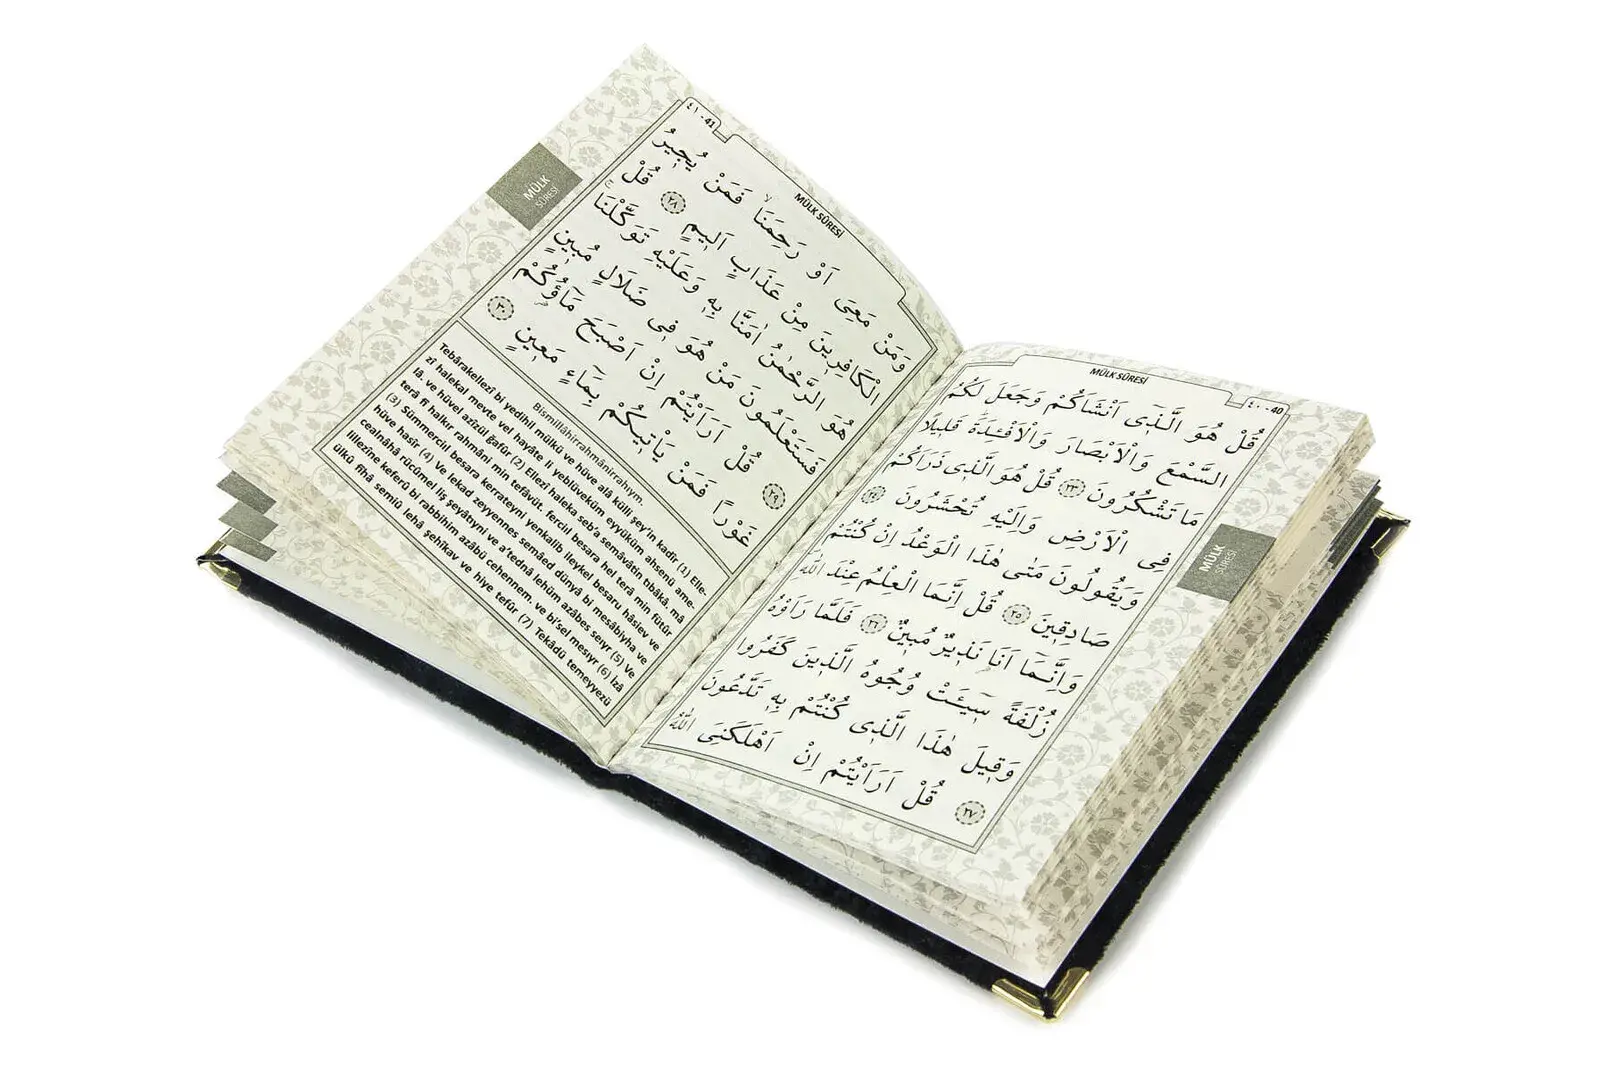 MÜLK SÛRESİ
٤٠-40
قُلْ هُوَ الَّذٖٓى اَنْشَاَكُمْ وَجَعَلَ لَكُمُ
السَّمْعَ وَالْاَبْصَارَ وَالْاَفْـِٔدَةَ قَلٖيلًا
مَا تَشْكُرُونَ ٢٣ قُلْ هُوَ الَّذٖى ذَرَاَكُمْ
فِى الْاَرْضِ وَاِلَيْهِ تُحْشَرُونَ ٢٤
وَيَقُولُونَ مَتٰى هٰذَا الْوَعْدُ اِنْ كُنْتُمْ
صَادِقٖينَ ٢٥ قُلْ اِنَّمَا الْعِلْمُ عِنْدَ اللّٰهِ
وَاِنَّمَٓا اَنَا نَذٖيرٌ مُبٖينٌ ٢٦ فَلَمَّا رَاَوْهُ
زُلْفَةً سٖٓيـَٔتْ وُجُوهُ الَّذٖينَ كَفَرُوا
وَقٖيلَ هٰذَا الَّذٖى كُنْتُمْ بِهٖ تَدَّعُونَ
٢٧ قُلْ اَرَاَيْتُمْ اِنْ اَهْلَكَنِىَ اللّٰهُ
MÜLK
SÛRESİ
MÜLK SÛRESİ
٤١-41
وَمَنْ مَعِىَ اَوْ رَحِمَنَا فَمَنْ يُجٖيرُ
الْكَافِرٖينَ مِنْ عَذَابٍ اَلٖيمٍ ٢٨ قُلْ
هُوَ الرَّحْمٰنُ اٰمَنَّا بِهٖ وَعَلَيْهِ تَوَكَّلْنَا
فَسَتَعْلَمُونَ مَنْ هُوَ فٖى ضَلَالٍ مُبٖينٍ
٢٩ قُلْ اَرَاَيْتُمْ اِنْ اَصْبَحَ مَٓاؤُكُمْ
غَوْرًا فَمَنْ يَاْتٖيكُمْ بِمَٓاءٍ مَعٖينٍ ٣٠
Bismillâhirrahmânirrahıym.
Tebârakellezî bi yedihil mülkü ve hüve alâ külli şey'in kadîr (1) Elle-
zî halekal mevte vel hayâte li yeblüveküm eyyüküm ahsenü ame-
lâ. ve hüvel azîzül ğafûr (2) Ellezî haleka seb'a semâvâtin tıbâkâ. mâ
terâ fî halkır rahmâni min tefâvüt. ferciıl besara hel terâ min fütûr
(3) Sümmerciıl besara kerrateyni yenkalib ileykel besaru hâsiev ve
hüve hasîr (4) Ve lekad zeyyennes semâed dünyâ bi mesâbiyha ve
cealnâhâ rücûmel liş şeyâtıyni ve a'tednâ lehüm azâbes seıyr (5) Ve
lillezîne keferû bi rabbihim azâbü cehennem. ve bi'sel mesıyr (6) İzâ
ülkû fîhâ semiû lehâ şehîkav ve hiye tefûr (7) Tekâdü temeyyezü
MÜLK
SÛRESİ